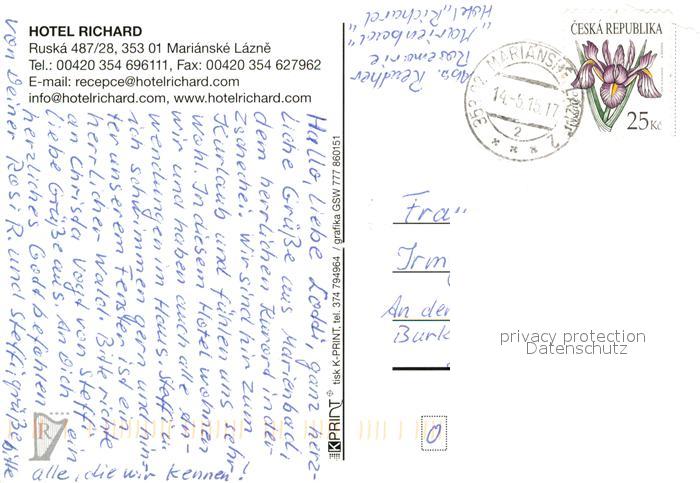 HOTEL RICHARD
Ruská 487/28, 353 01 Mariánské Lázně
Tel.: 00420 354 696111, Fax: 00420 354 627962
E-mail: recepce@hotelrichard.com
info@hotelrichard.com, www.hotelrichard.com
Hallo, liebe Loddi, ganz herz-
liche Grüße aus Marienbad
dem herrlichen Kurort in der
Tschechei. Wir sind hir zum
Kurlaub und fühlen uns sehr
wohl. In diesem Hotel wohnen
wir und haben auch alle An-
wendungen im Haus. Steffi u.
ich schwimmen gern und hin-
ter unserem Fenster ist ein
herrlicher Wald. Bitte richte
an Christa Vogt von Steffi ein
liebe Grüße aus. An Dich ein
herzliches Gott befohlen
von Deiner Rosi R. und Steffi, grüße bitte
alle, die wir kennen!
K-PRINT tisk K-PRINT, tel. 374 794964 / grafika GSW 777 860151
Abs. Reidher
Rosemarie
"Marienbad"
Hotel "Richard"
353 01 MARIÁNSKÉ LÁZNĚ 2
14.-5.15.17
2
ČESKÁ REPUBLIKA
25 Kč
Frau
Irm
An der
Burk
privacy protection
Datenschutz
R
0